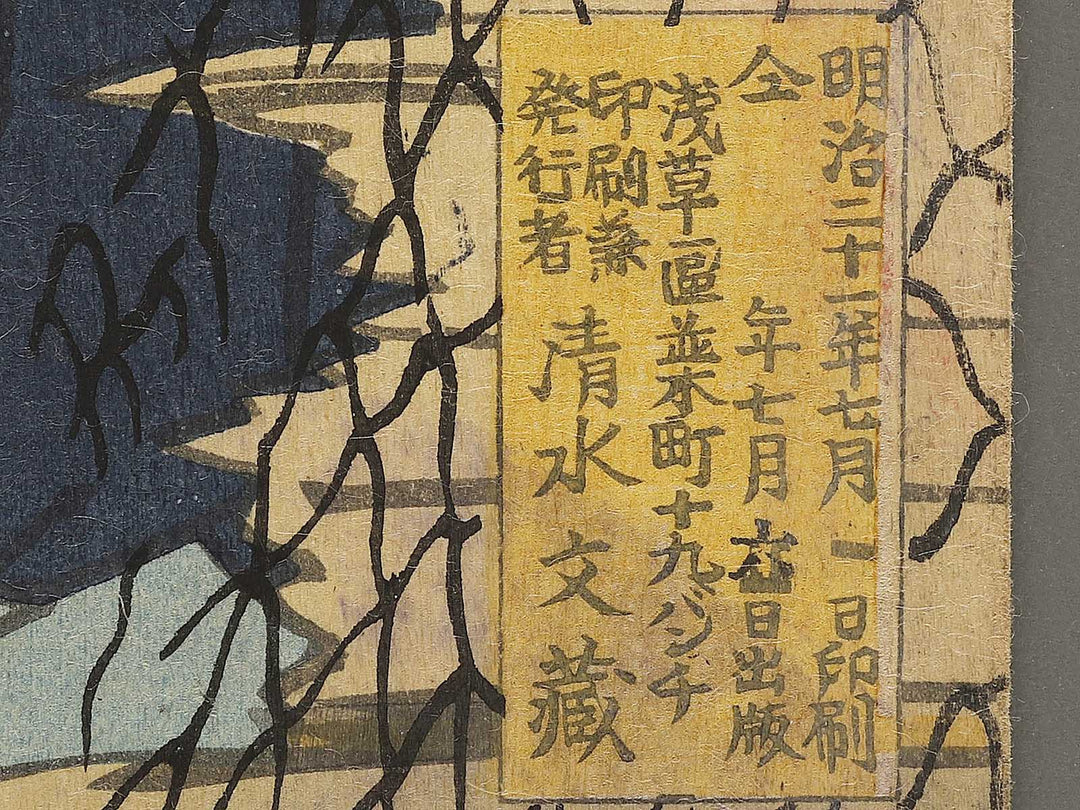 明治二十一年七月一日印刷
仝年七月日出版
浅草區並木町十九バンチ
印刷兼
発行者 清水文藏